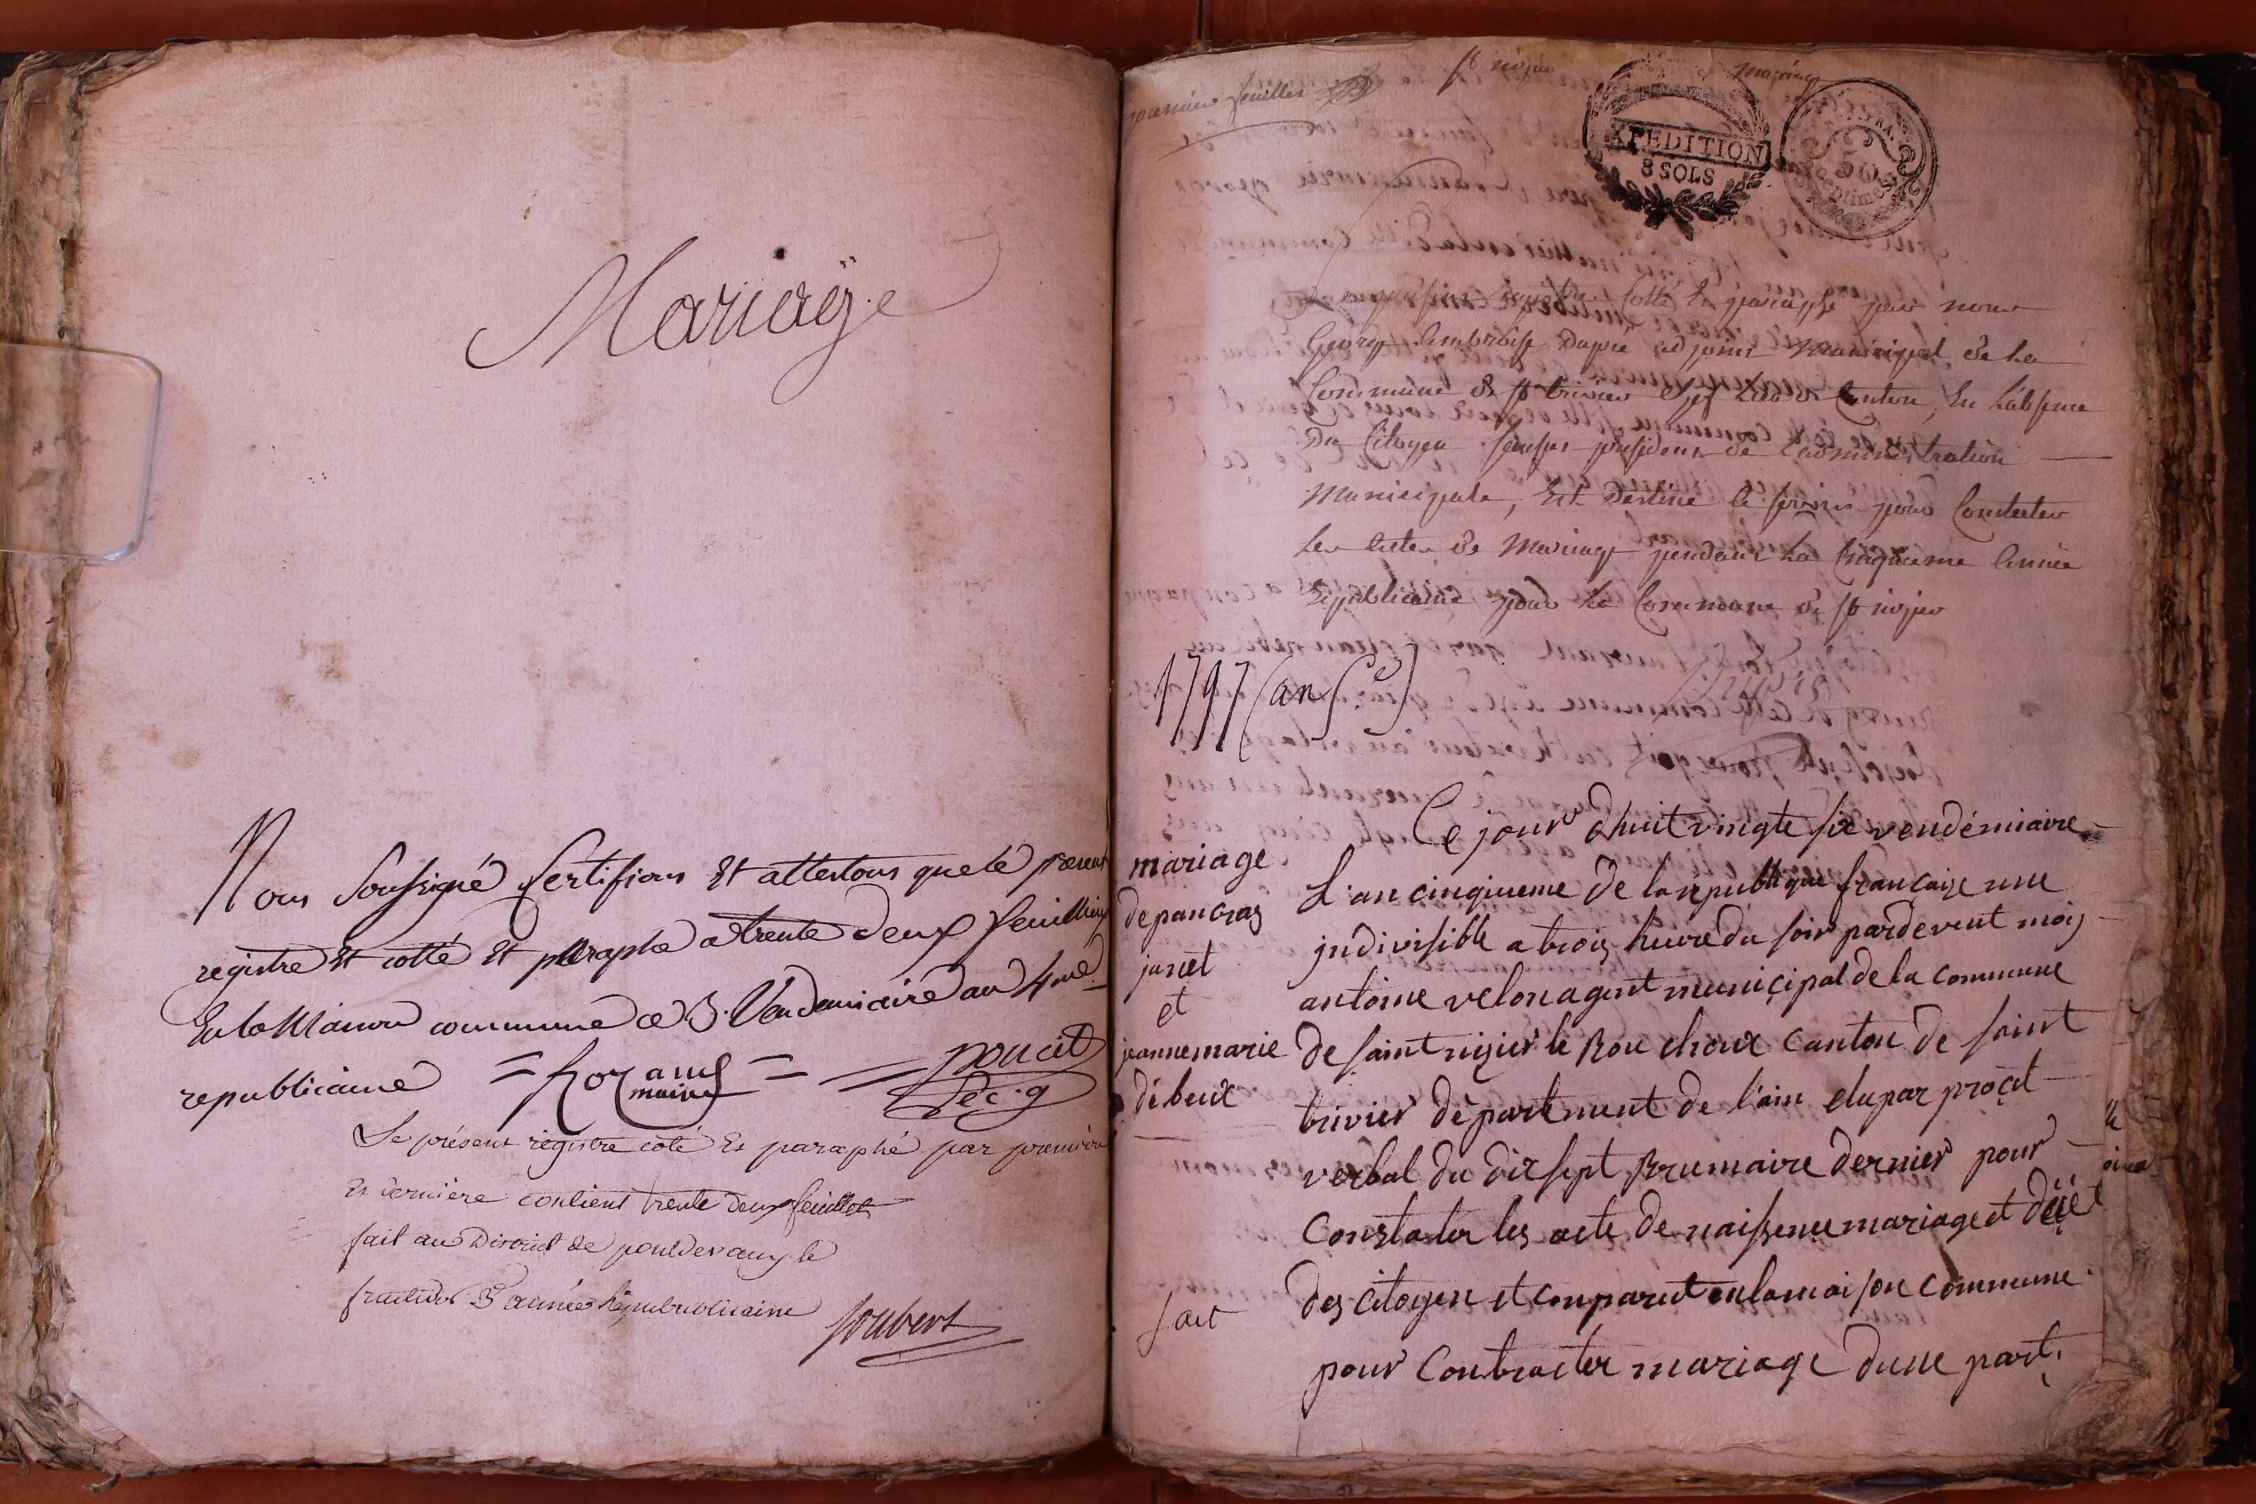 Mariage
Nous soussigné Certifions Et attestons que le present
registre Et cotté Et paraphé a trente deux feuillies
En la Maison commune ce 3. Vendemiaire an 4me
republicaine
maire
poncet
Sec. g
Le présent registre coté Et paraphé par première
Et derniére contient trente deux feuillets
fait au District de pontdevaux le
fructidor 3e année Républicaine
Joubert
premier feuillet
st nizier
mariage
XPEDITION
8 SOLS
50
centimes
Le present registre Cotté Et paraphé par nous
George Ambroise Dupré adjoint Municipal de la
Commune de st trivier Chef Lieu de Canton, En L'absence
Du Citoyen president de L'administration
Municipale, Est Destiné a servir pour Constater
les Actes de Mariage pendant La Cinquieme Année
Republicaine pour la Commune de st nizier
1797 (an 5e)
mariage
de pancraz
janet
et
jeanne marie
débeux
fait
Ce jour dhuit vingte six vendémiaire
L'an cinqiueme de la republique francaize une
jndivisible a troiz heure du soir pardevent moij
antoine velon agent municipal de la commune
de saint nizier le Bouchoux Canton de saint
trivier département de l'ain elu par procét
verbal du dix sept Brumaire dernier pour
Constater les acte de naissence mariage et décét
dez citoyen et conparut en la maison commune
pour Contracter mariage dune part,